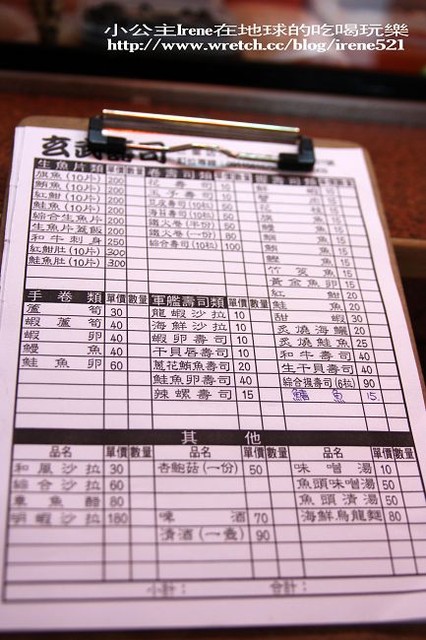 小公主Irene在地球的吃喝玩樂
http://www.wretch.cc/blog/irene521
玄武壽司
生魚片類 單價 數量
旗魚(10片) 200
鮪魚(10片) 200
紅魽(10片) 200
鮭魚(10片) 200
綜合生魚片 200
生魚片蓋飯 200
和牛刺身 250
紅魽肚(10片) 300
鮭魚肚(10片) 300
卷壽司類 單價 數量
花壽司
豆皮壽司(10粒) 50
海苔壽司(10粒) 50
鐵火卷(半份)
鐵火卷(一份) 80
綜合壽司(10粒) 100
壽司類 單價 數量
竹筴魚 15
黃金魚卵 15
紅魽 20
鮭魚 20
甜蝦 30
炙燒海鱺 20
炙燒鮭魚 25
和牛壽司 40
生干貝壽司 40
綜合握壽司(6粒) 90
鯖魚 15
手卷類 單價 數量
蘆筍 30
蝦蘆筍 40
蝦卵 40
鰻魚 40
鮭魚卵 60
軍艦壽司類 單價 數量
龍蝦沙拉 10
海鮮沙拉 10
蝦卵壽司 10
干貝唇壽司 10
蔥花鮪魚壽司 20
鮭魚卵壽司 40
辣螺壽司 15
其他
品名 單價 數量 品名 單價 數量 品名 單價 數量
和風沙拉 30
綜合沙拉 60
章魚醋 80
明蝦沙拉 180
杏鮑菇(一份) 50
啤酒 70
清酒(一壺) 90
味噌湯 10
魚頭味噌湯 50
魚頭清湯 50
海鮮烏龍麵 80
小計：
合計：